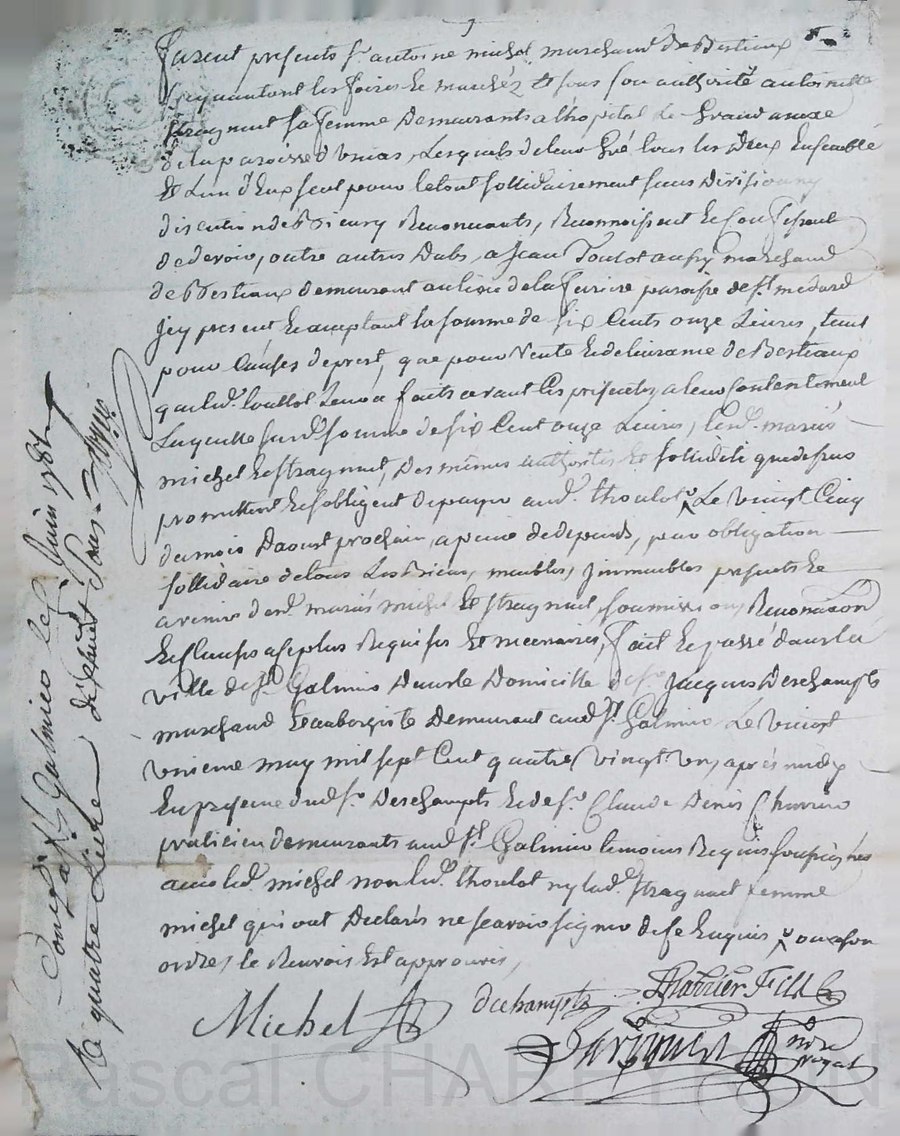 furent présents sr. antoine michel marchand de Bestiaux
frequantant les foires et marchés et sous son authorité antoinette
stragnat sa femme Demeurants a l'hopital de Grand
de la paroisse d'unias, Lesquels de leur Gré tous les Deux Ensemble
Et L'un d'Eux seul pour le tout sollidairement sans Division ny
discution de Bien y Renonceants, Reconnoissent et Confessent
de devoir, outre autres Dubs, a Jean Toulot aussy marchand
de Bestiaux demeurant au lieu de la ferriere paroisse de st. medard
Jcy present et acceptant la somme de six Cents onze Livres, tant
pour Causes de prest, que pour Vente et delivrance de Bestiaux
que led. toullot Leur a faits avant Ces presentes a leur Contentement
Laquelle susd. somme de six Cent onze Livres, Lesd. mariés
michel et stragnat, des mêmes authorités et sollidité que dessus
promettent et s'obligent de payer aud. thoulot Le vingt Cinq
du mois D'aoust prochain, a peine de depends, pour obligation
sollidaire de tous Les Biens, meubles, Jmmeubles presents et
avenirs desd. mariés michel et stragnat, soumissions, Renonciation
et Clauses a ce plus Requises et necessaires, fait et passé dans la
ville de st. Galmier Dans le Domicille de sr. Jacques Deschampts
marchand et aubergiste Demeurant aud. st. Galmier Le vingt
unieme may mil sept Cent quatre vingt un, après midy
En presence dud. sr. Deschampts et de sr. Claude Denis Charrier
praticien demeurants aud. st. Galmier temoins Requis soussignés
avec led. michel non led. thoulot ny lad. stragnat femme
michel qui ont Declarés ne scavoir signer de ce Enquis, ou a son
ordre, le Renvois Est approuvé,
Michel
deschampts
Charrier fils
nore
royal
Conz. a st. Galmier le Juin 1781
Rs quatre Livre dixhuit sous